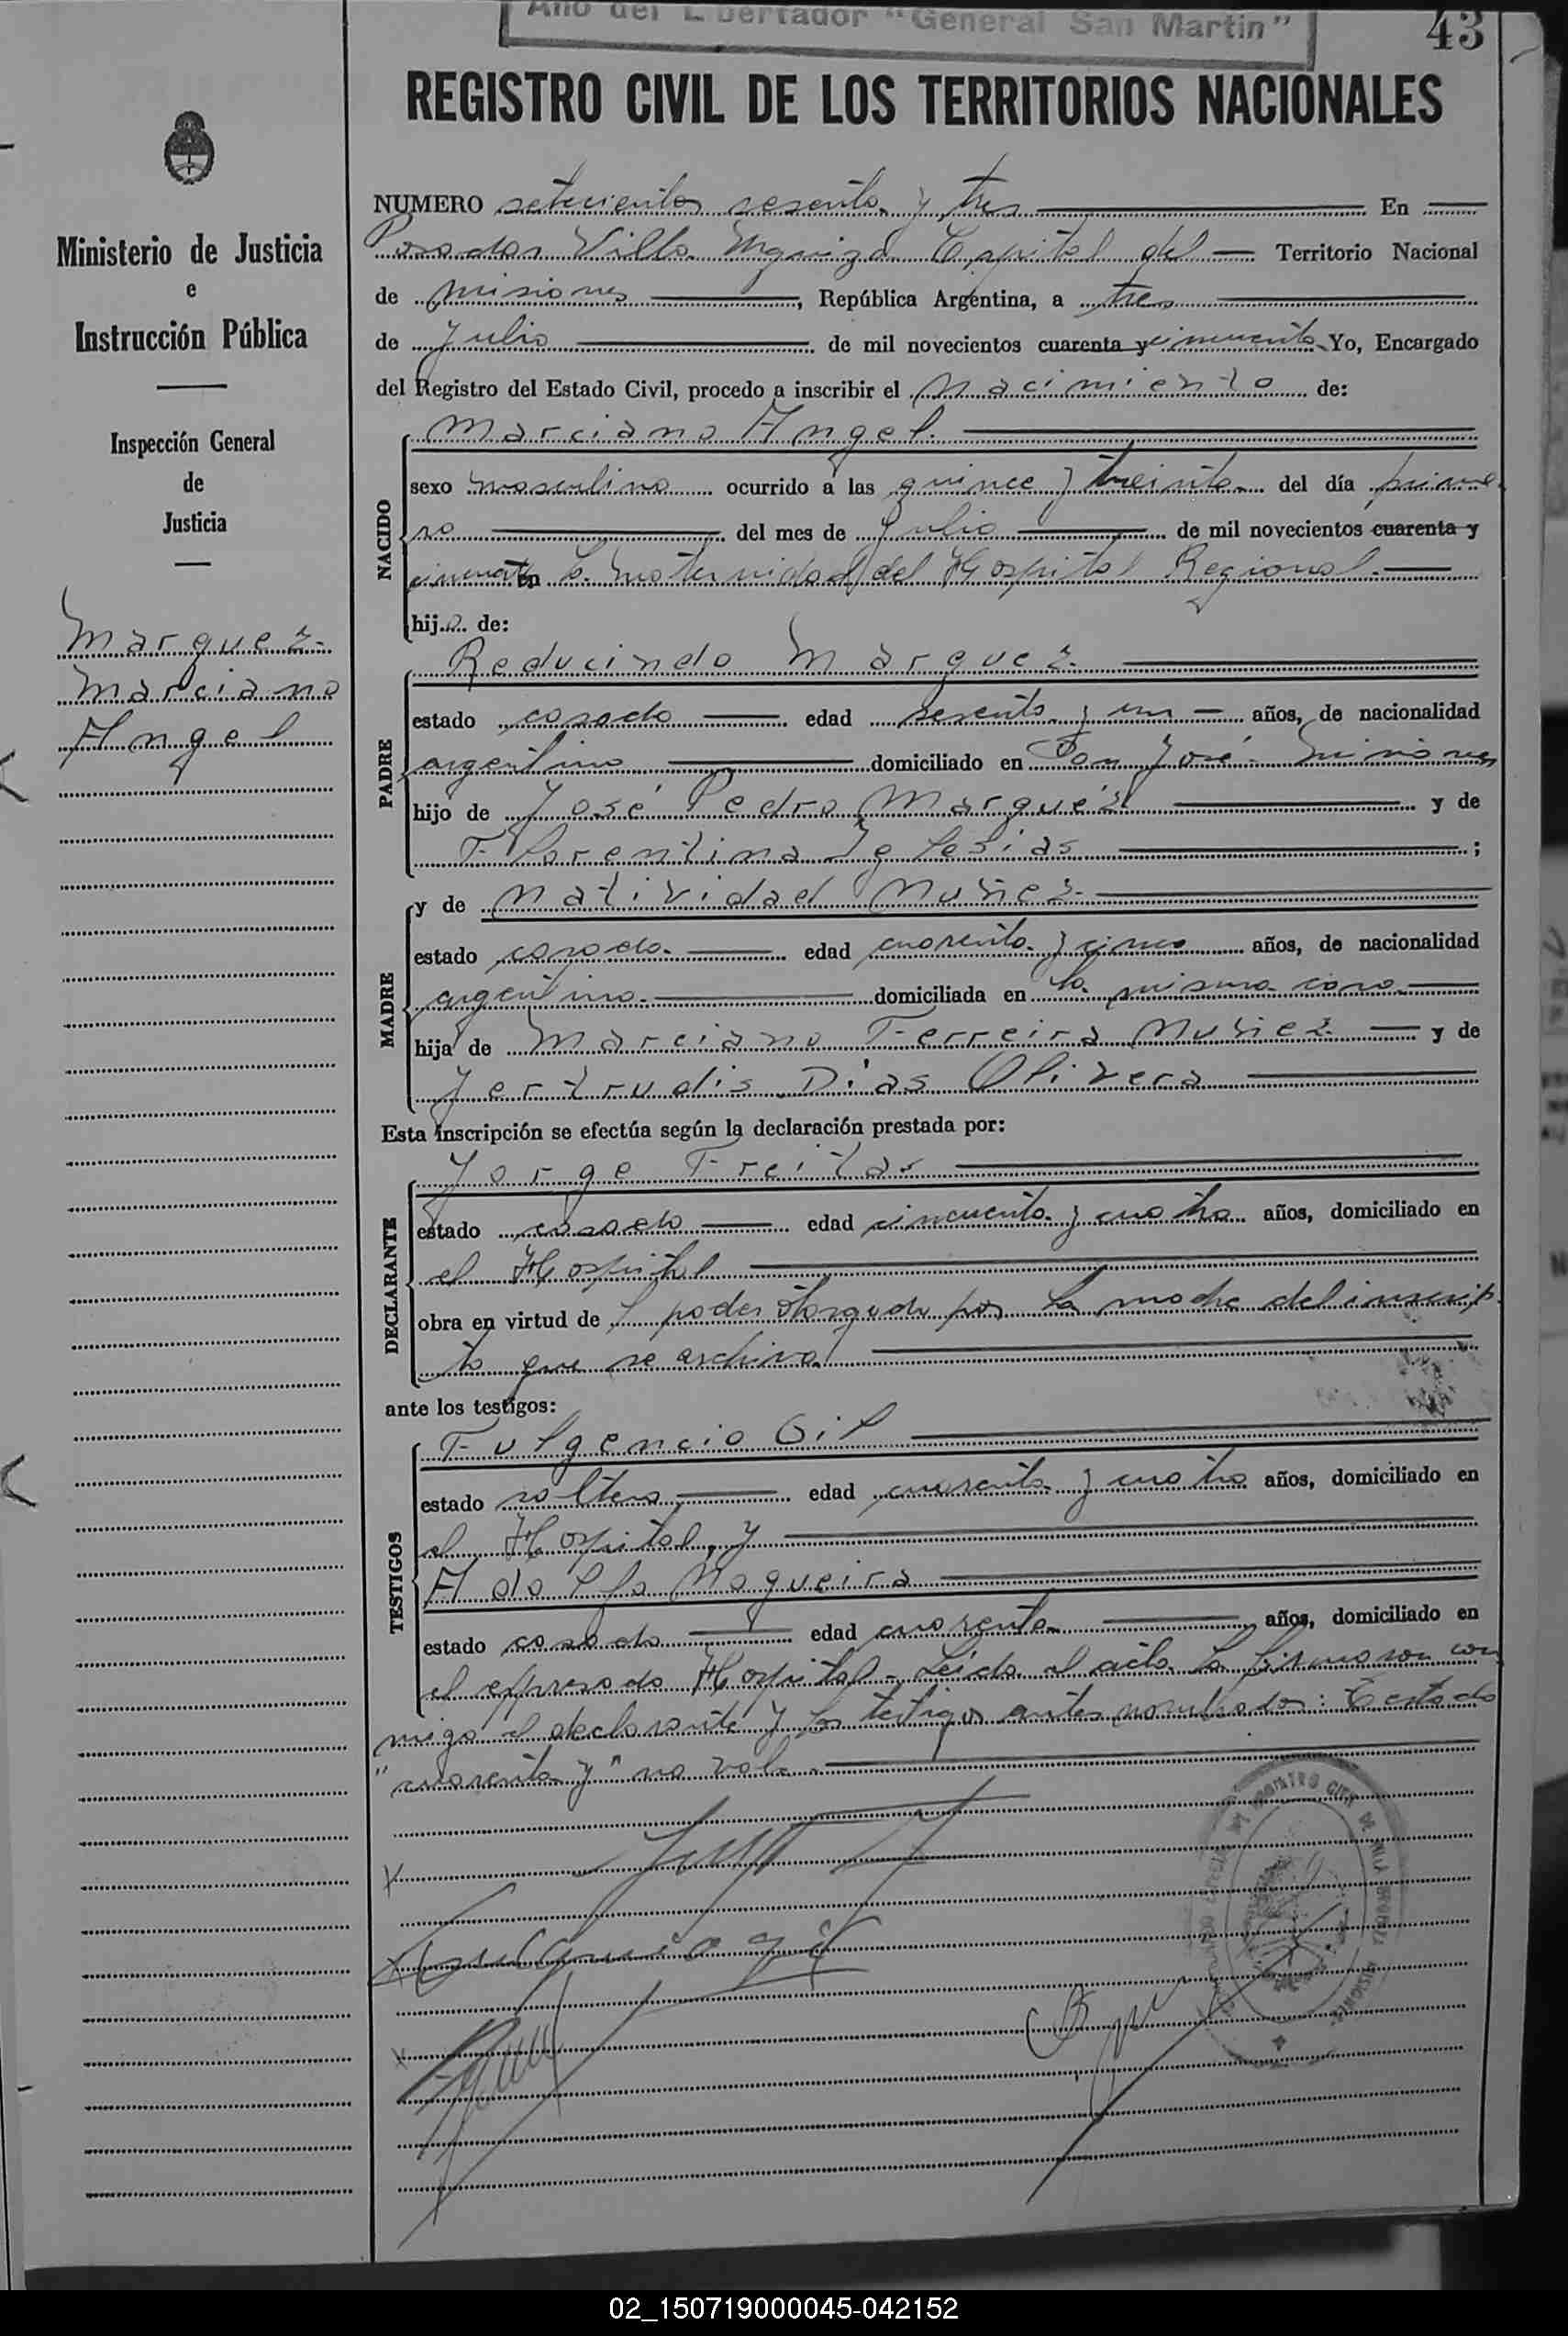 Año del Libertador "General San Martin"
43
REGISTRO CIVIL DE LOS TERRITORIOS NACIONALES
Ministerio de Justicia
e
Instrucción Pública
Inspección General
de
Justicia
Marquez
Marciano
Angel
NUMERO setecientos sesenta y tres En
Posadas Villa Urquiza Capital del Territorio Nacional
de Misiones, República Argentina, a tres
de Julio de mil novecientos cuarenta y cincuenta Yo, Encargado
del Registro del Estado Civil, procedo a inscribir el Nacimiento de:
NACIDO
Marciano Angel.
sexo masculino ocurrido a las quince y treinta del día prime-
ro del mes de Julio de mil novecientos cuarenta y
cincuenta en la Maternidad del Hospital Regional.
hijo de:
PADRE
Reducindo Marquez
estado casado edad sesenta y un años, de nacionalidad
argentina domiciliado en San José Misiones
hijo de José Pedro Marquez y de
Florentina Iglesias;
MADRE
y de Natividad Muñez
estado casada edad cuarenta y cinco años, de nacionalidad
argentina domiciliada en la misma casa
hija de Marciano Ferreira Muñez y de
Jertrudis Dias Olivera
Esta inscripción se efectúa según la declaración prestada por:
DECLARANTE
Jorge Freitas
estado casado edad cincuenta y cuatro años, domiciliado en
el Hospital
obra en virtud del poder otorgado por la madre del inscrip-
to que se archiva
ante los testigos:
TESTIGOS
Fulgencio Gil
estado soltero edad cuarenta y cuatro años, domiciliado en
el Hospital, y
Adolfo Nogueira
estado casado edad cuarenta años, domiciliado en
el expresado Hospital - Leida el acta la firmaron con-
migo el declarante y los testigos antes nombrados: Testado
"cuarenta y" no vale.
02_150719000045-042152